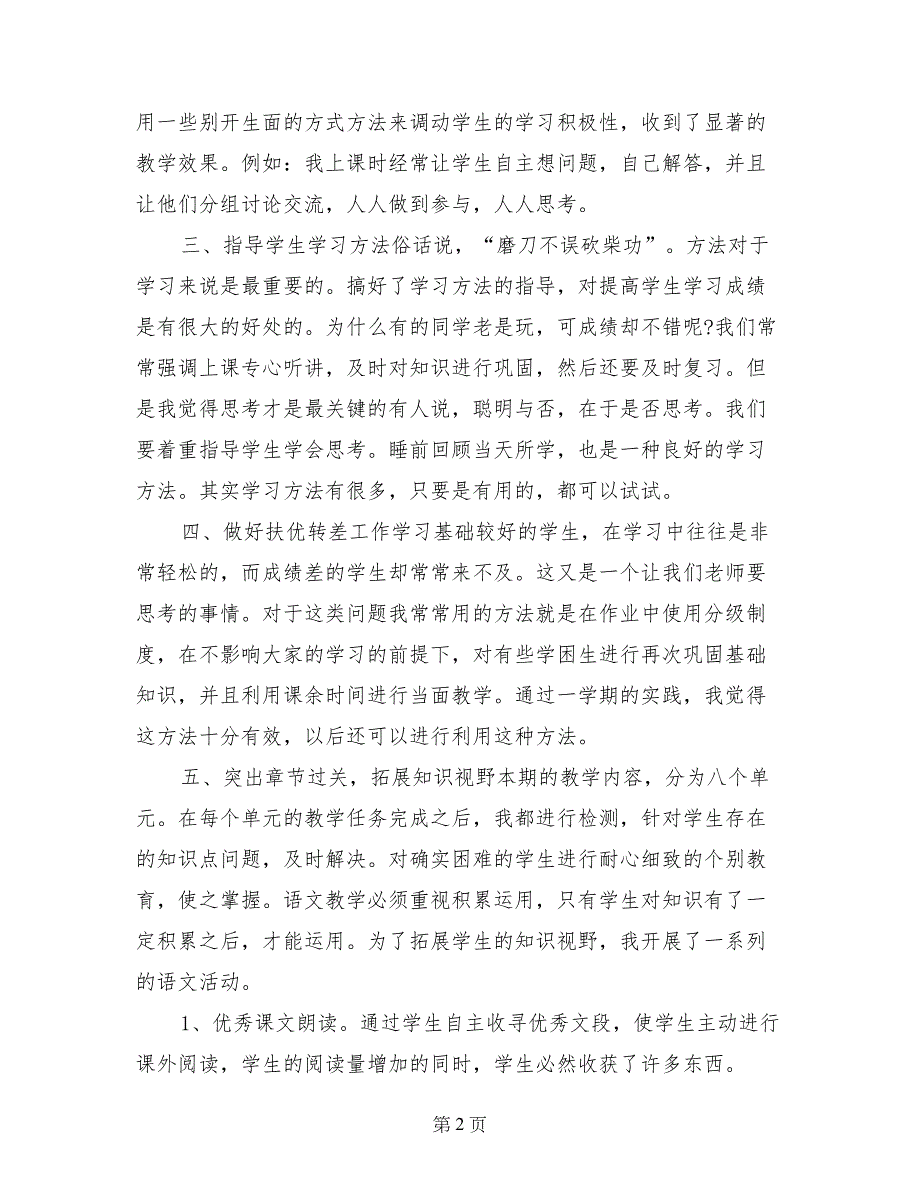 用一些别开生面的方式方法来调动学生的学习积极性，收到了显著的
教学效果。例如：我上课时经常让学生自主想问题，自己解答，并且
让他们分组讨论交流，人人做到参与，人人思考。
三、指导学生学习方法俗话说，“磨刀不误砍柴功”。方法对于
学习来说是最重要的。搞好了学习方法的指导，对提高学生学习成绩
是有很大的好处的。为什么有的同学老是玩，可成绩却不错呢?我们常
常强调上课专心听讲，及时对知识进行巩固，然后还要及时复习。但
是我觉得思考才是最关键的有人说，聪明与否，在于是否思考。我们
要着重指导学生学会思考。睡前回顾当天所学，也是一种良好的学习
方法。其实学习方法有很多，只要是有用的，都可以试试。
四、做好扶优转差工作学习基础较好的学生，在学习中往往是非
常轻松的，而成绩差的学生却常常来不及。这又是一个让我们老师要
思考的事情。对于这类问题我常常用的方法就是在作业中使用分级制
度，在不影响大家的学习的前提下，对有些学困生进行再次巩固基础
知识，并且利用课余时间进行当面教学。通过一学期的实践，我觉得
这方法十分有效，以后还可以进行利用这种方法。
五、突出章节过关，拓展知识视野本期的教学内容，分为八个单
元。在每个单元的教学任务完成之后，我都进行检测，针对学生存在
的知识点问题，及时解决。对确实困难的学生进行耐心细致的个别教
育，使之掌握。语文教学必须重视积累运用，只有学生对知识有了一
定积累之后，才能运用。为了拓展学生的知识视野，我开展了一系列
的语文活动。
1、优秀课文朗读。通过学生自主收寻优秀文段，使学生主动进行
课外阅读，学生的阅读量增加的同时，学生必然收获了许多东西。
第 2 页